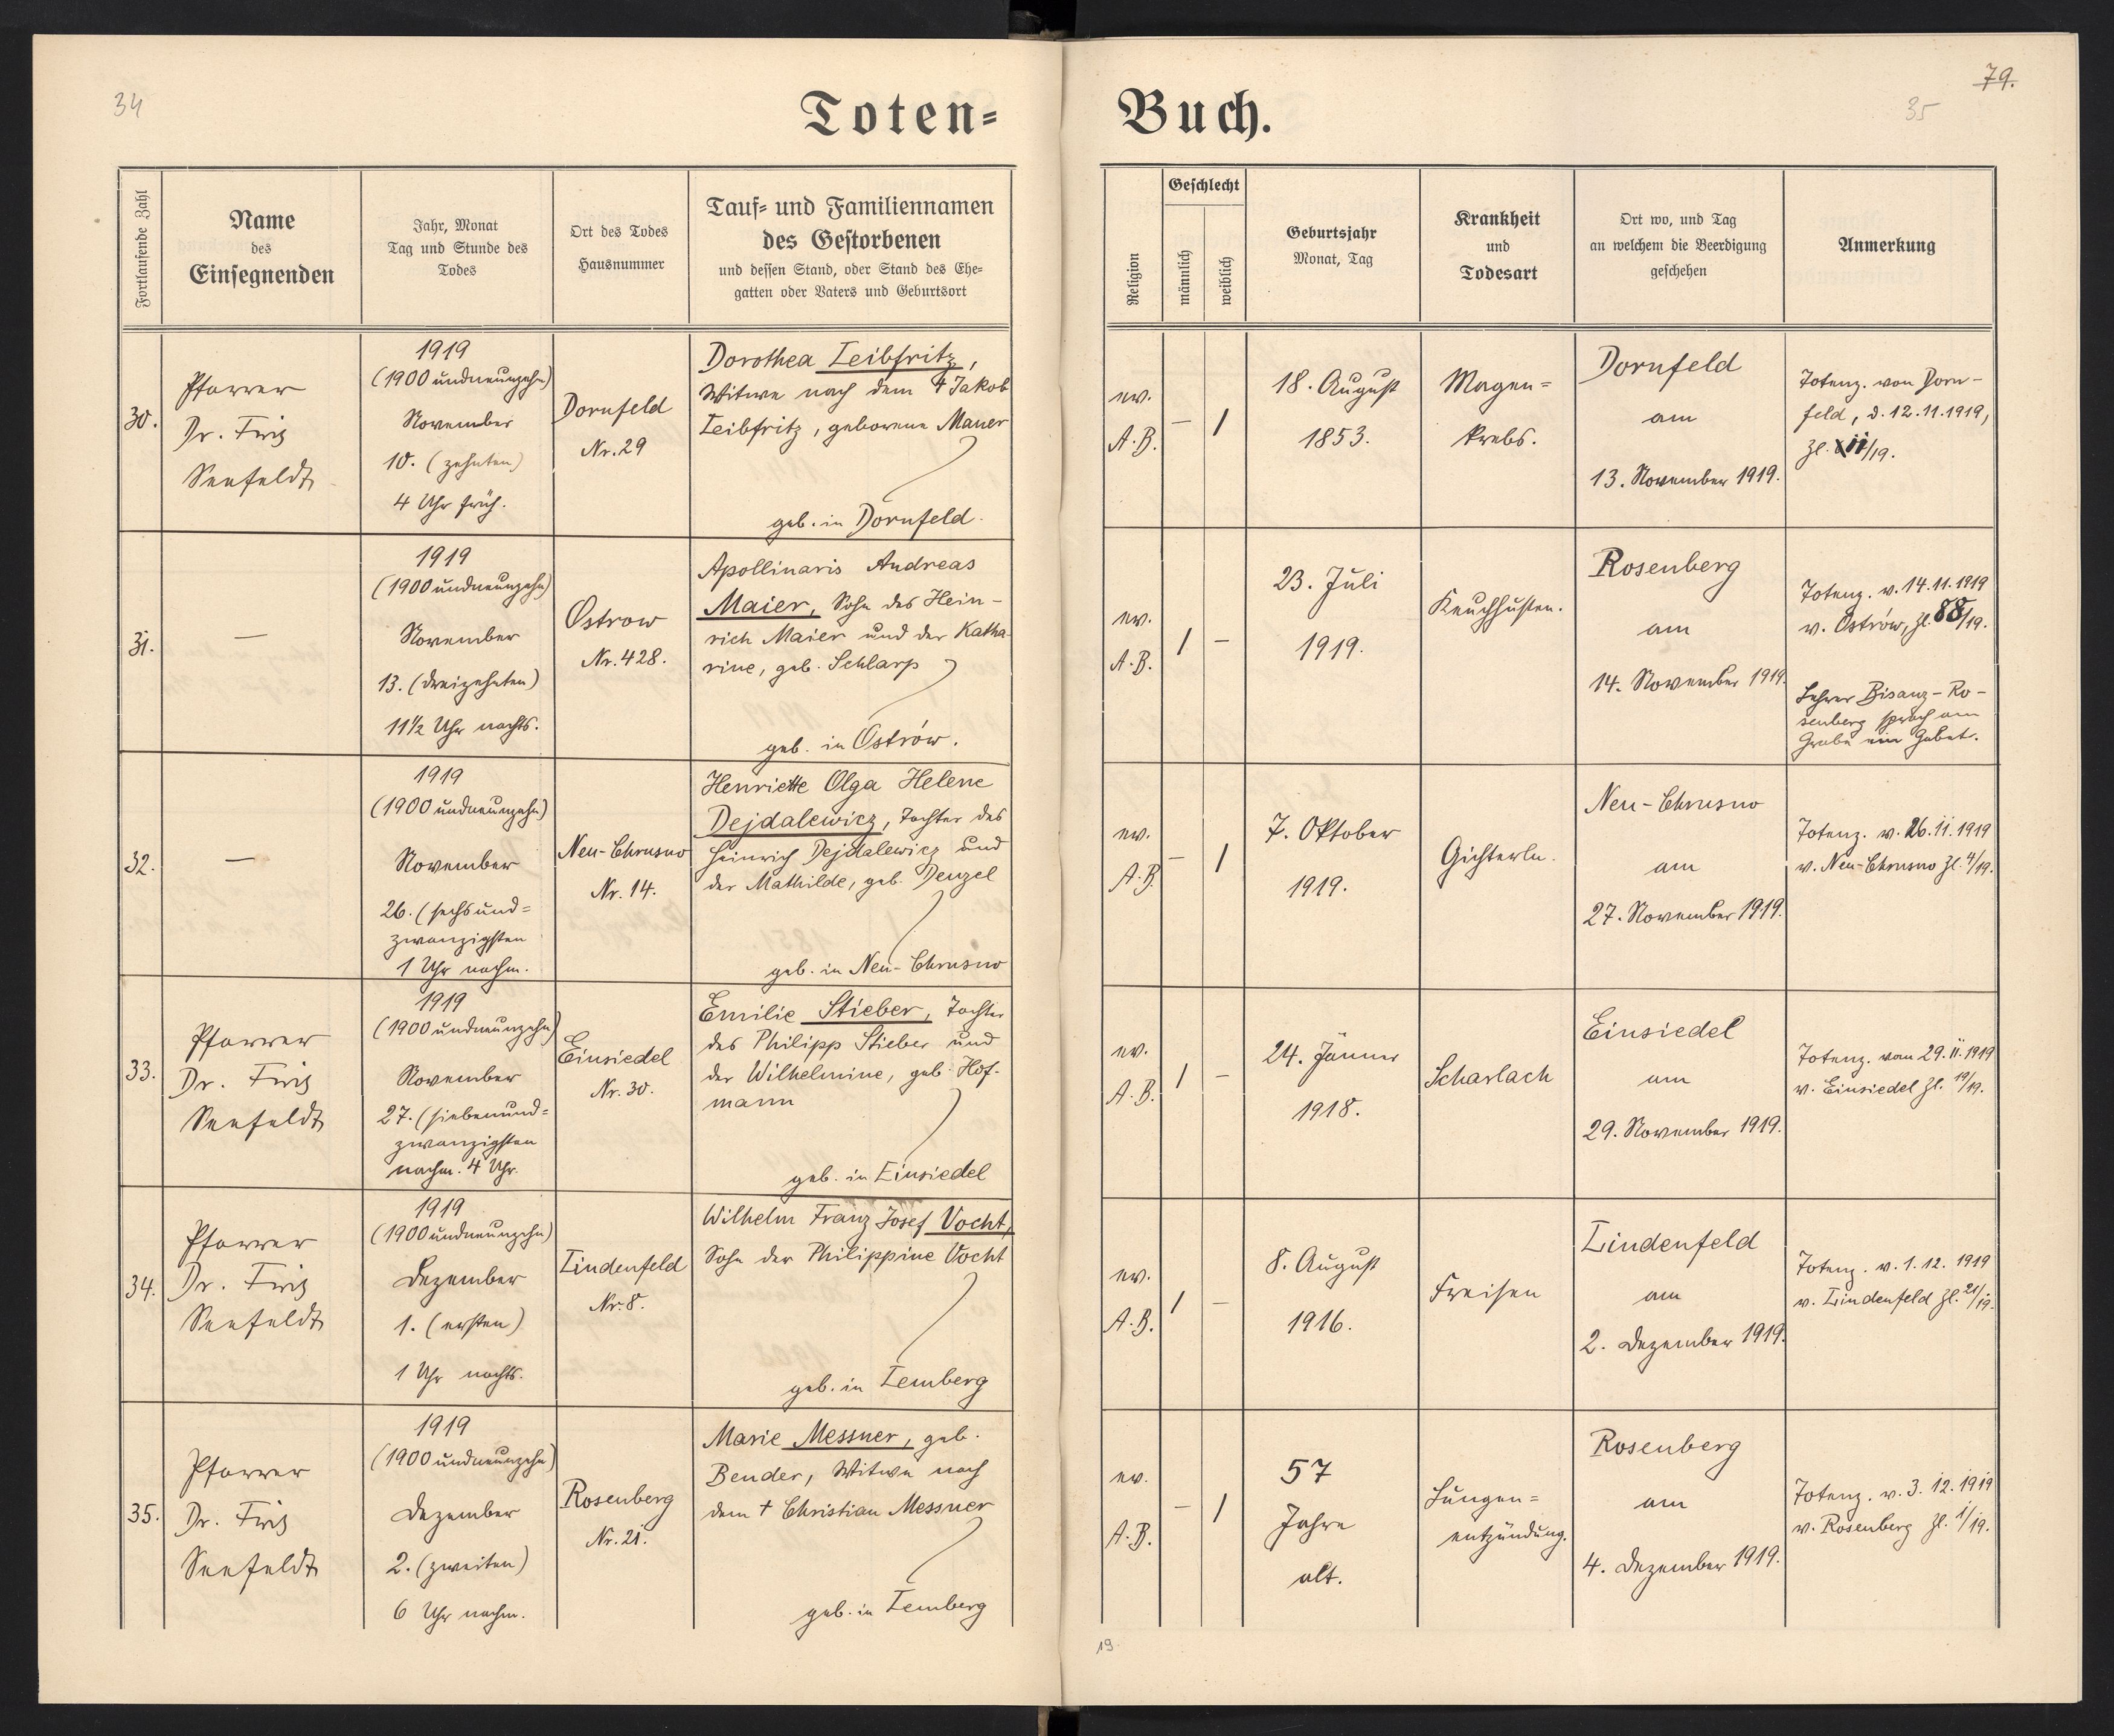 34
79.
35
Toten=
Buch.
Fortlaufende Zahl
Name
des
Einsegnenden
Jahr, Monat
Tag und Stunde des
Todes
Ort des Todes
Hausnummer
Tauf= und Familiennamen
des Gestorbenen
und dessen Stand, oder Stand des Ehe=
gatten oder Vaters und Geburtsort
Religion
Geschlecht
männlich
weiblich
Geburtsjahr
Monat, Tag
Krankheit
und
Todesart
Ort wo, und Tag
an welchem die Beerdigung
geschehen
Anmerkung
30.
Pfarrer
Dr. Fritz
Seefeldt
1919
(1900 undneunzehn)
November
10. (zehnten)
4 Uhr früh.
Dornfeld
Nr. 29
Dorothea Leibfritz,
Witwe nach dem † Jakob
Leibfritz, geborene Mauer
geb. in Dornfeld.
ev.
A.B.
—
1
18. August
1853.
Magen=
krebs.
Dornfeld
am
13. November 1919.
Totenz. von Dorn-
feld, d. 12.11.1919,
Zl. /19.
31.
—
1919
(1900 undneunzehn)
November
13. (dreizehnten)
11½ Uhr nachts.
Ostrow
Nr. 428.
Apollinaris Andreas
Maier, Sohn des Hein-
rich Maier und der Katha-
rine, geb. Schlarp
geb. in Ostrów.
ev.
A.B.
1
—
23. Juli
1919.
Keuchhusten.
Rosenberg
am
14. November 1919.
Totenz. v. 14.11.1919
v. Ostrów, Zl. 88/19.
Lehrer Bisanz-Ro-
senberg sprach am
Grabe ein Gebet.
32.
—
1919
(1900 undneunzehn)
November
26. (sechsund=
zwanzigsten
1 Uhr nachm.
Neu-Chrusno
Nr. 14.
Henriette Olga Helene
Dejdalewicz, Tochter des
Heinrich Dejdalewicz und
der Mathilde, geb. Denzel
geb. in Neu-Chrusno
ev.
A.B.
—
1
7. Oktober
1919.
Gichterln.
Neu-Chrusno
am
27. November 1919.
Totenz. v. 26.11.1919
v. Neu-Chrusno Zl. 4/19.
33.
Pfarrer
Dr. Fritz
Seefeldt
1919
(1900 undneunzehn)
November
27. (siebenund=
zwanzigsten
nachm. 4 Uhr.
Einsiedel
Nr. 30.
Emilie Stieber, Tochter
des Philipp Stieber und
der Wilhelmine, geb. Hof-
mann
geb. in Einsiedel
ev.
A.B.
1
—
24. Jänner
1918.
Scharlach
Einsiedel
am
29. November 1919.
Totenz. vom 29.11.1919
v. Einsiedel Zl. 19/19.
34.
Pfarrer
Dr. Fritz
Seefeldt
1919
(1900 undneunzehn)
Dezember
1. (ersten)
1 Uhr nachts.
Lindenfeld
Nr. 8.
Wilhelm Franz Josef Vocht,
Sohn der Philippine Vocht
geb. in Lemberg
ev.
A.B.
1
—
8. August
1916.
Freisen
Lindenfeld
am
2. Dezember 1919.
Totenz. v. 1.12.1919
v. Lindenfeld Zl. 21/19.
35.
Pfarrer
Dr. Fritz
Seefeldt
1919
(1900 undneunzehn)
Dezember
2. (zweiten)
6 Uhr nachm.
Rosenberg
Nr. 21.
Marie Messner, geb.
Bender, Witwe nach
dem † Christian Messner
geb. in Lemberg
ev.
A.B.
—
1
57
Jahre
alt.
Lungen=
entzündung.
Rosenberg
am
4. Dezember 1919.
Totenz. v. 3.12.1919
v. Rosenberg Zl. 1/19.
19.